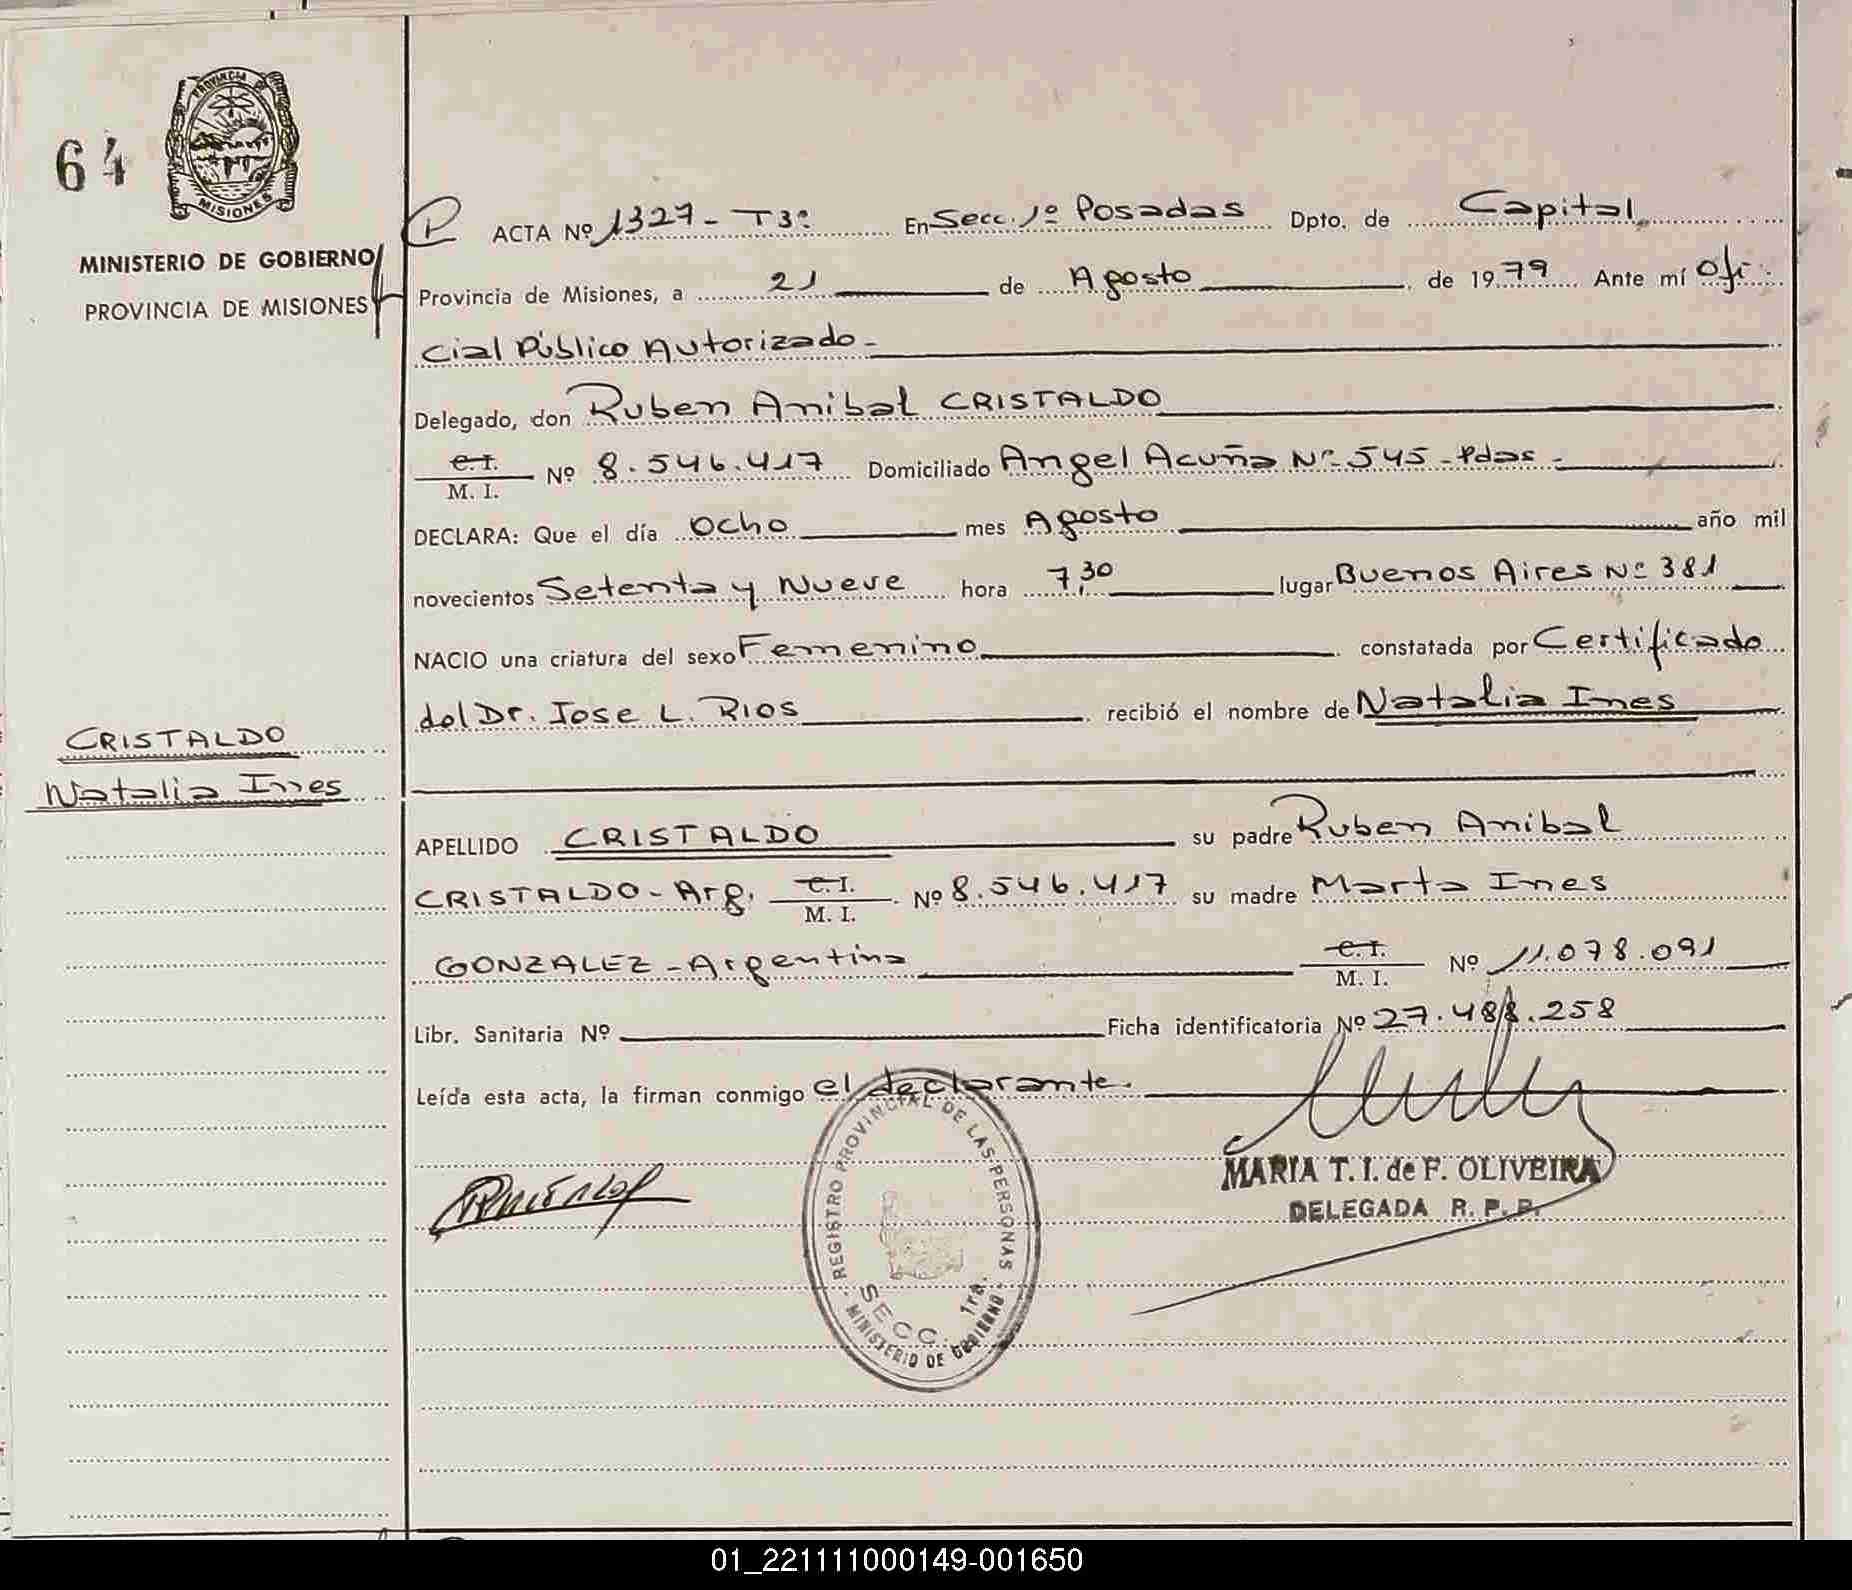 64
PROVINCIA
MISIONES
MINISTERIO DE GOBIERNO
PROVINCIA DE MISIONES
CRISTALDO
Natalia Ines
ACTA Nº 1327- T3º En Secc. 1º Posadas Dpto. de Capital
Provincia de Misiones, a 21 de Agosto de 1979 Ante mí Ofi
cial Público Autorizado-
Delegado, don Ruben Anibal CRISTALDO
C.I. M. I. Nº 8.546.417 Domiciliado Angel Acuña Nº 545-Pdas-
DECLARA: Que el día Ocho mes Agosto año mil
novecientos Setenta y Nueve hora 7,30 lugar Buenos Aires Nº 381
NACIO una criatura del sexo Femenino constatada por Certificado
del Dr. Jose L. Rios recibió el nombre de Natalia Ines
APELLIDO CRISTALDO su padre Ruben Anibal
CRISTALDO-Arg. C.I. M. I. Nº 8.546.417 su madre Marta Ines
GONZALEZ-Argentina C.I. M. I. Nº 11.078.091
Libr. Sanitaria Nº Ficha identificatoria Nº 27.488.258
Leída esta acta, la firman conmigo el declarante.
REGISTRO PROVINCIAL DE LAS PERSONAS
SECC. 1ra.
MINISTERIO DE GOBIERNO
MARIA T. I. de F. OLIVEIRA
DELEGADA R. P. P.
01_221111000149-001650